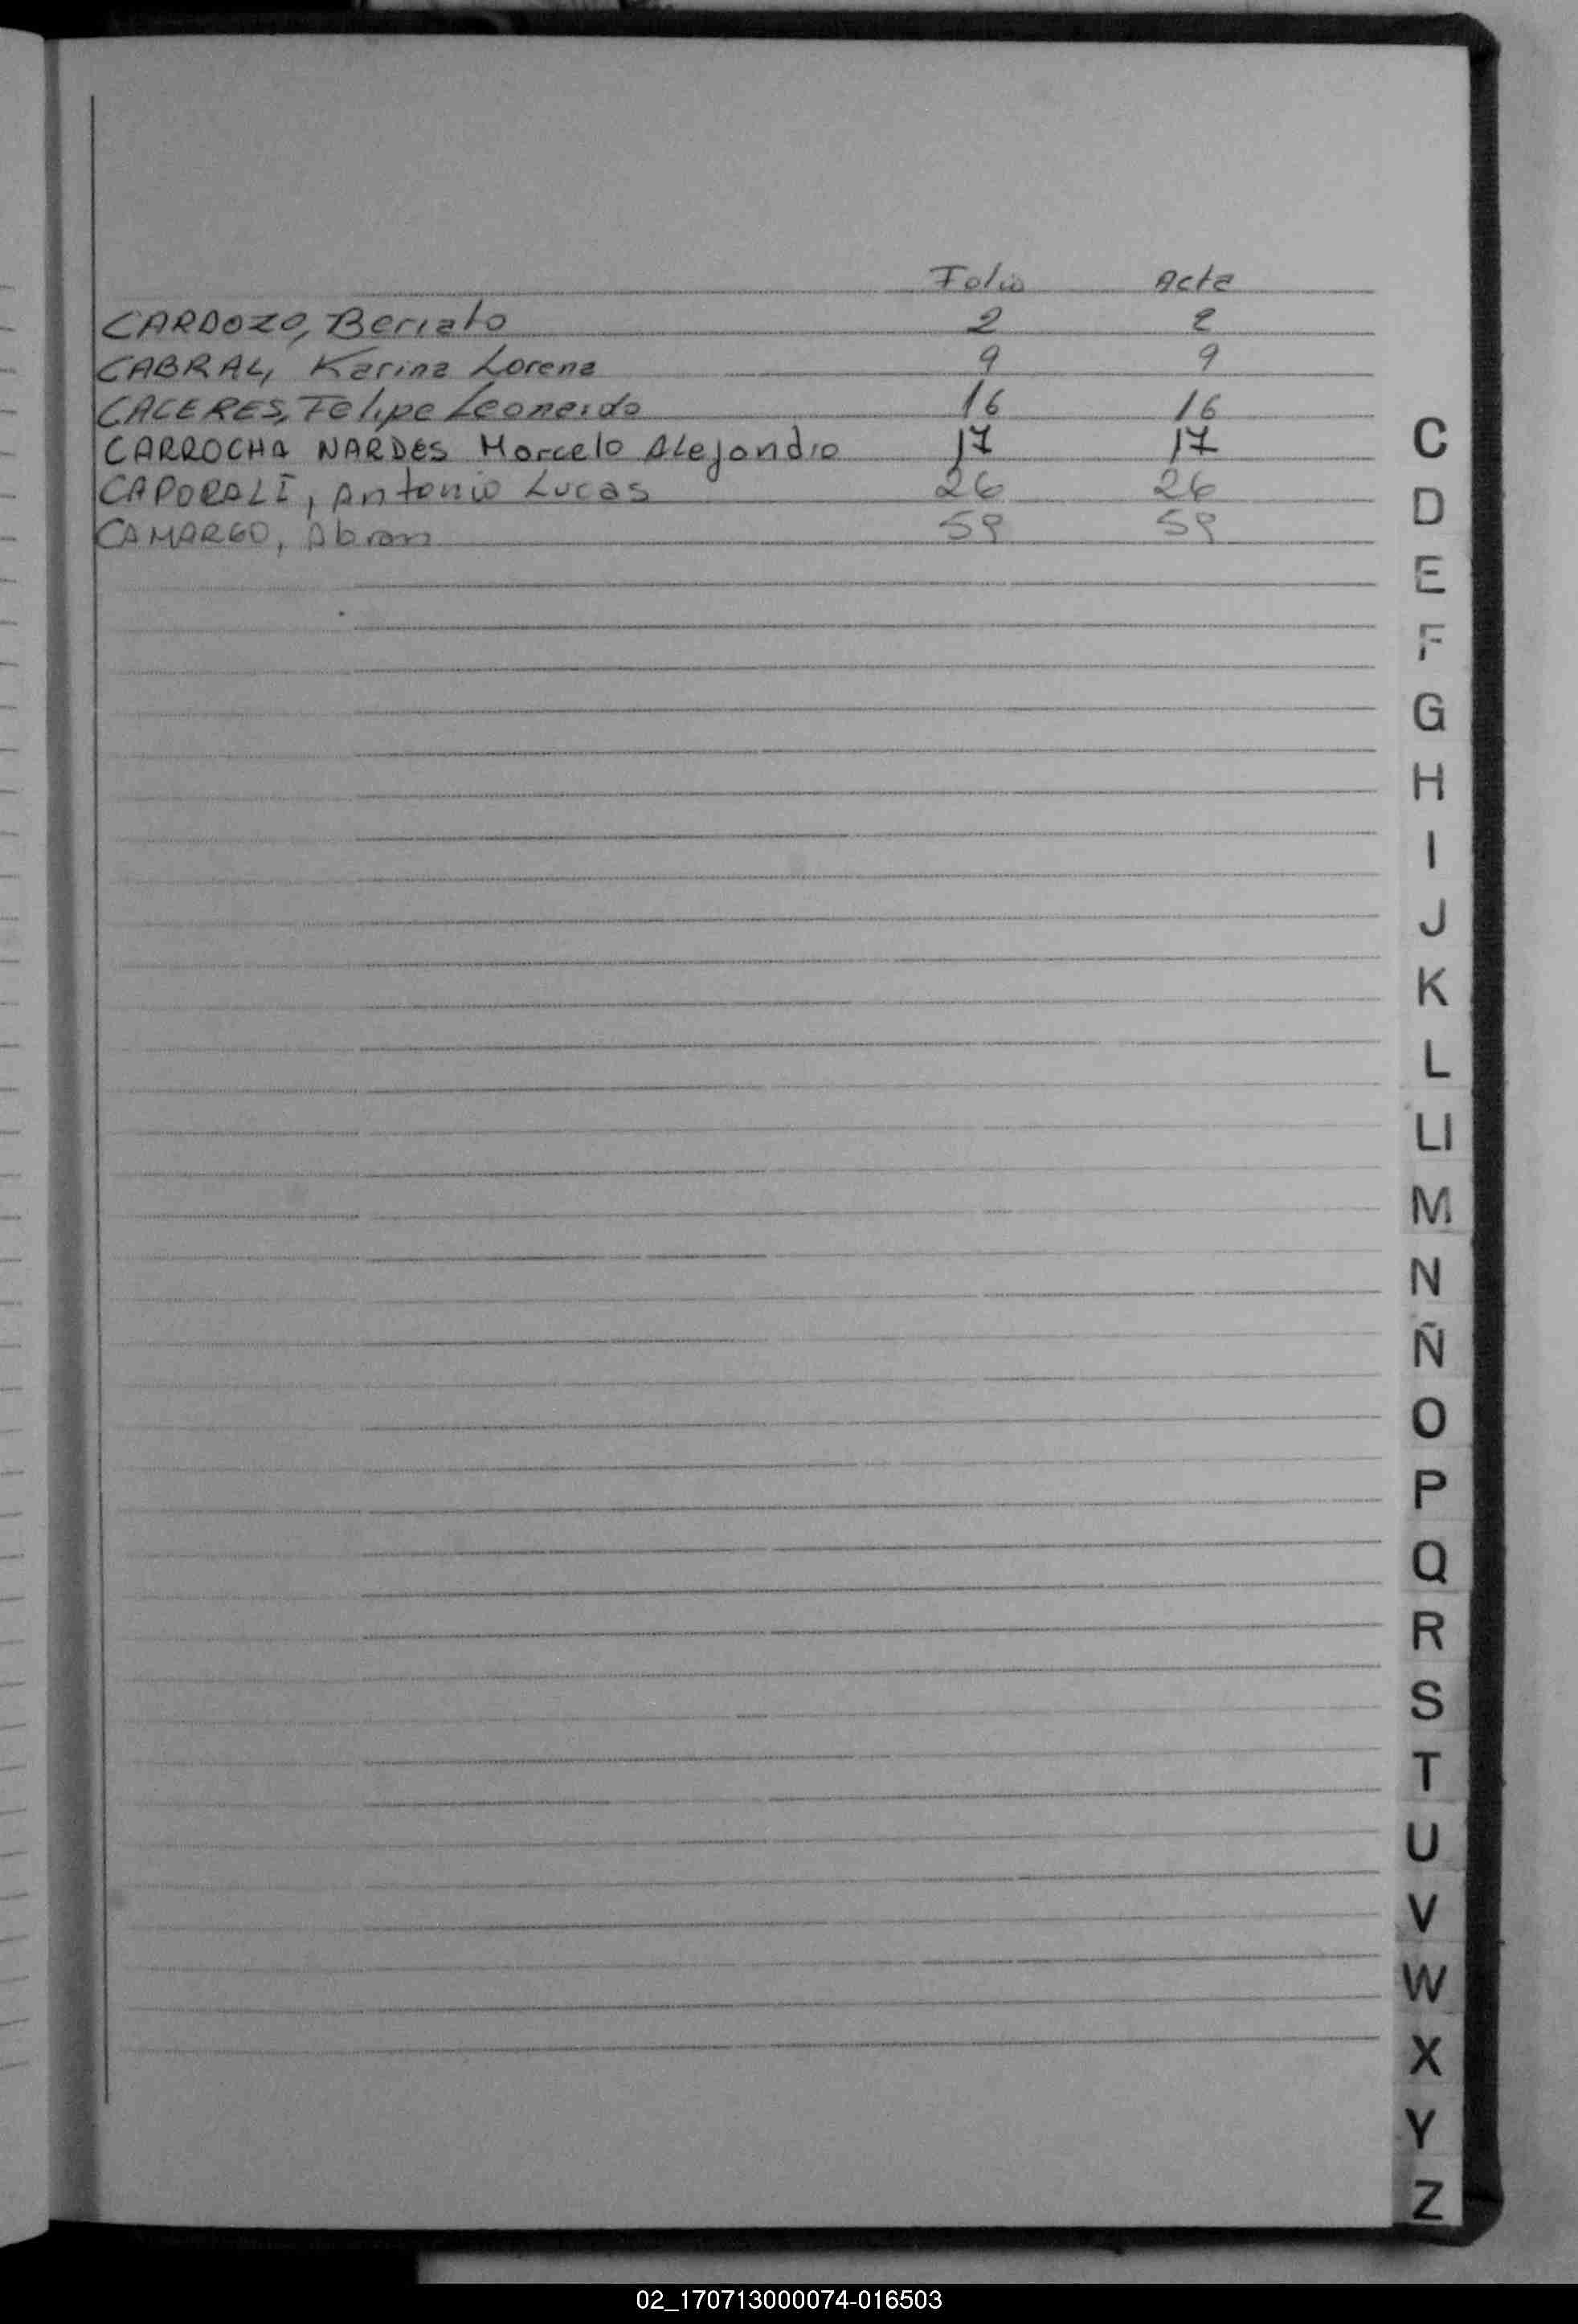 Folio Acta
CARDOZO, Beriato 2 2
CABRAL, Karina Lorena 9 9
CACERES, Felipe Leonardo 16 16
CARROCHA NARDES Marcelo Alejandro 17 17
CAPORALI, Antonio Lucas 26 26
CAMARGO, Abram 59 59
C
D
E
F
G
H
I
J
K
L
Ll
M
N
Ñ
O
P
Q
R
S
T
U
V
W
X
Y
Z
02_170713000074-016503